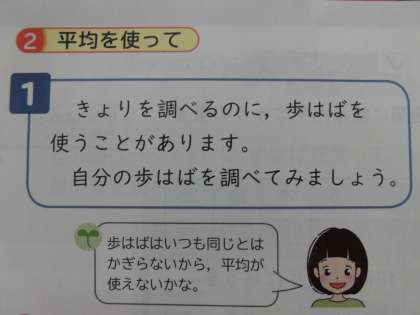 2 平均を使って
1
きょりを調べるのに，歩はばを
使うことがあります。
自分の歩はばを調べてみましょう。
歩はばはいつも同じとは
かぎらないから，平均が
使えないかな。